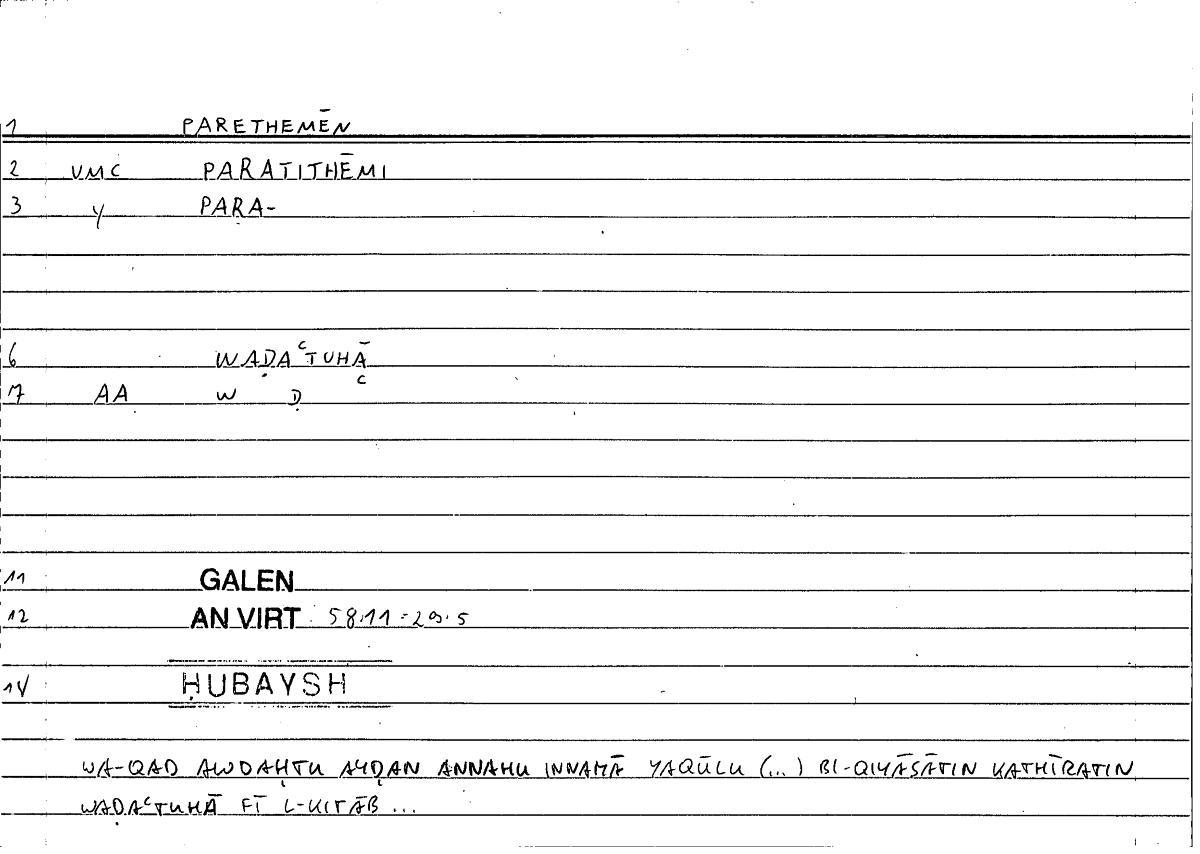 1 PARETHEMĒN
2 VMC PARATITHĒMI
3 Y PARA-
6 WAḌAʿTUHĀ
7 AA W Ḍ ʿ
11 GALEN
12 AN VIRT 58.11 = 29.5
14 ḤUBAYSH
WA-QAD AWḌAḤTU AYḌAN ANNAHU INNAMĀ YAQŪLU (...) BI-QIYĀSĀTIN KATHĪRATIN
WAḌAʿTUHĀ FĪ L-KITĀB ...